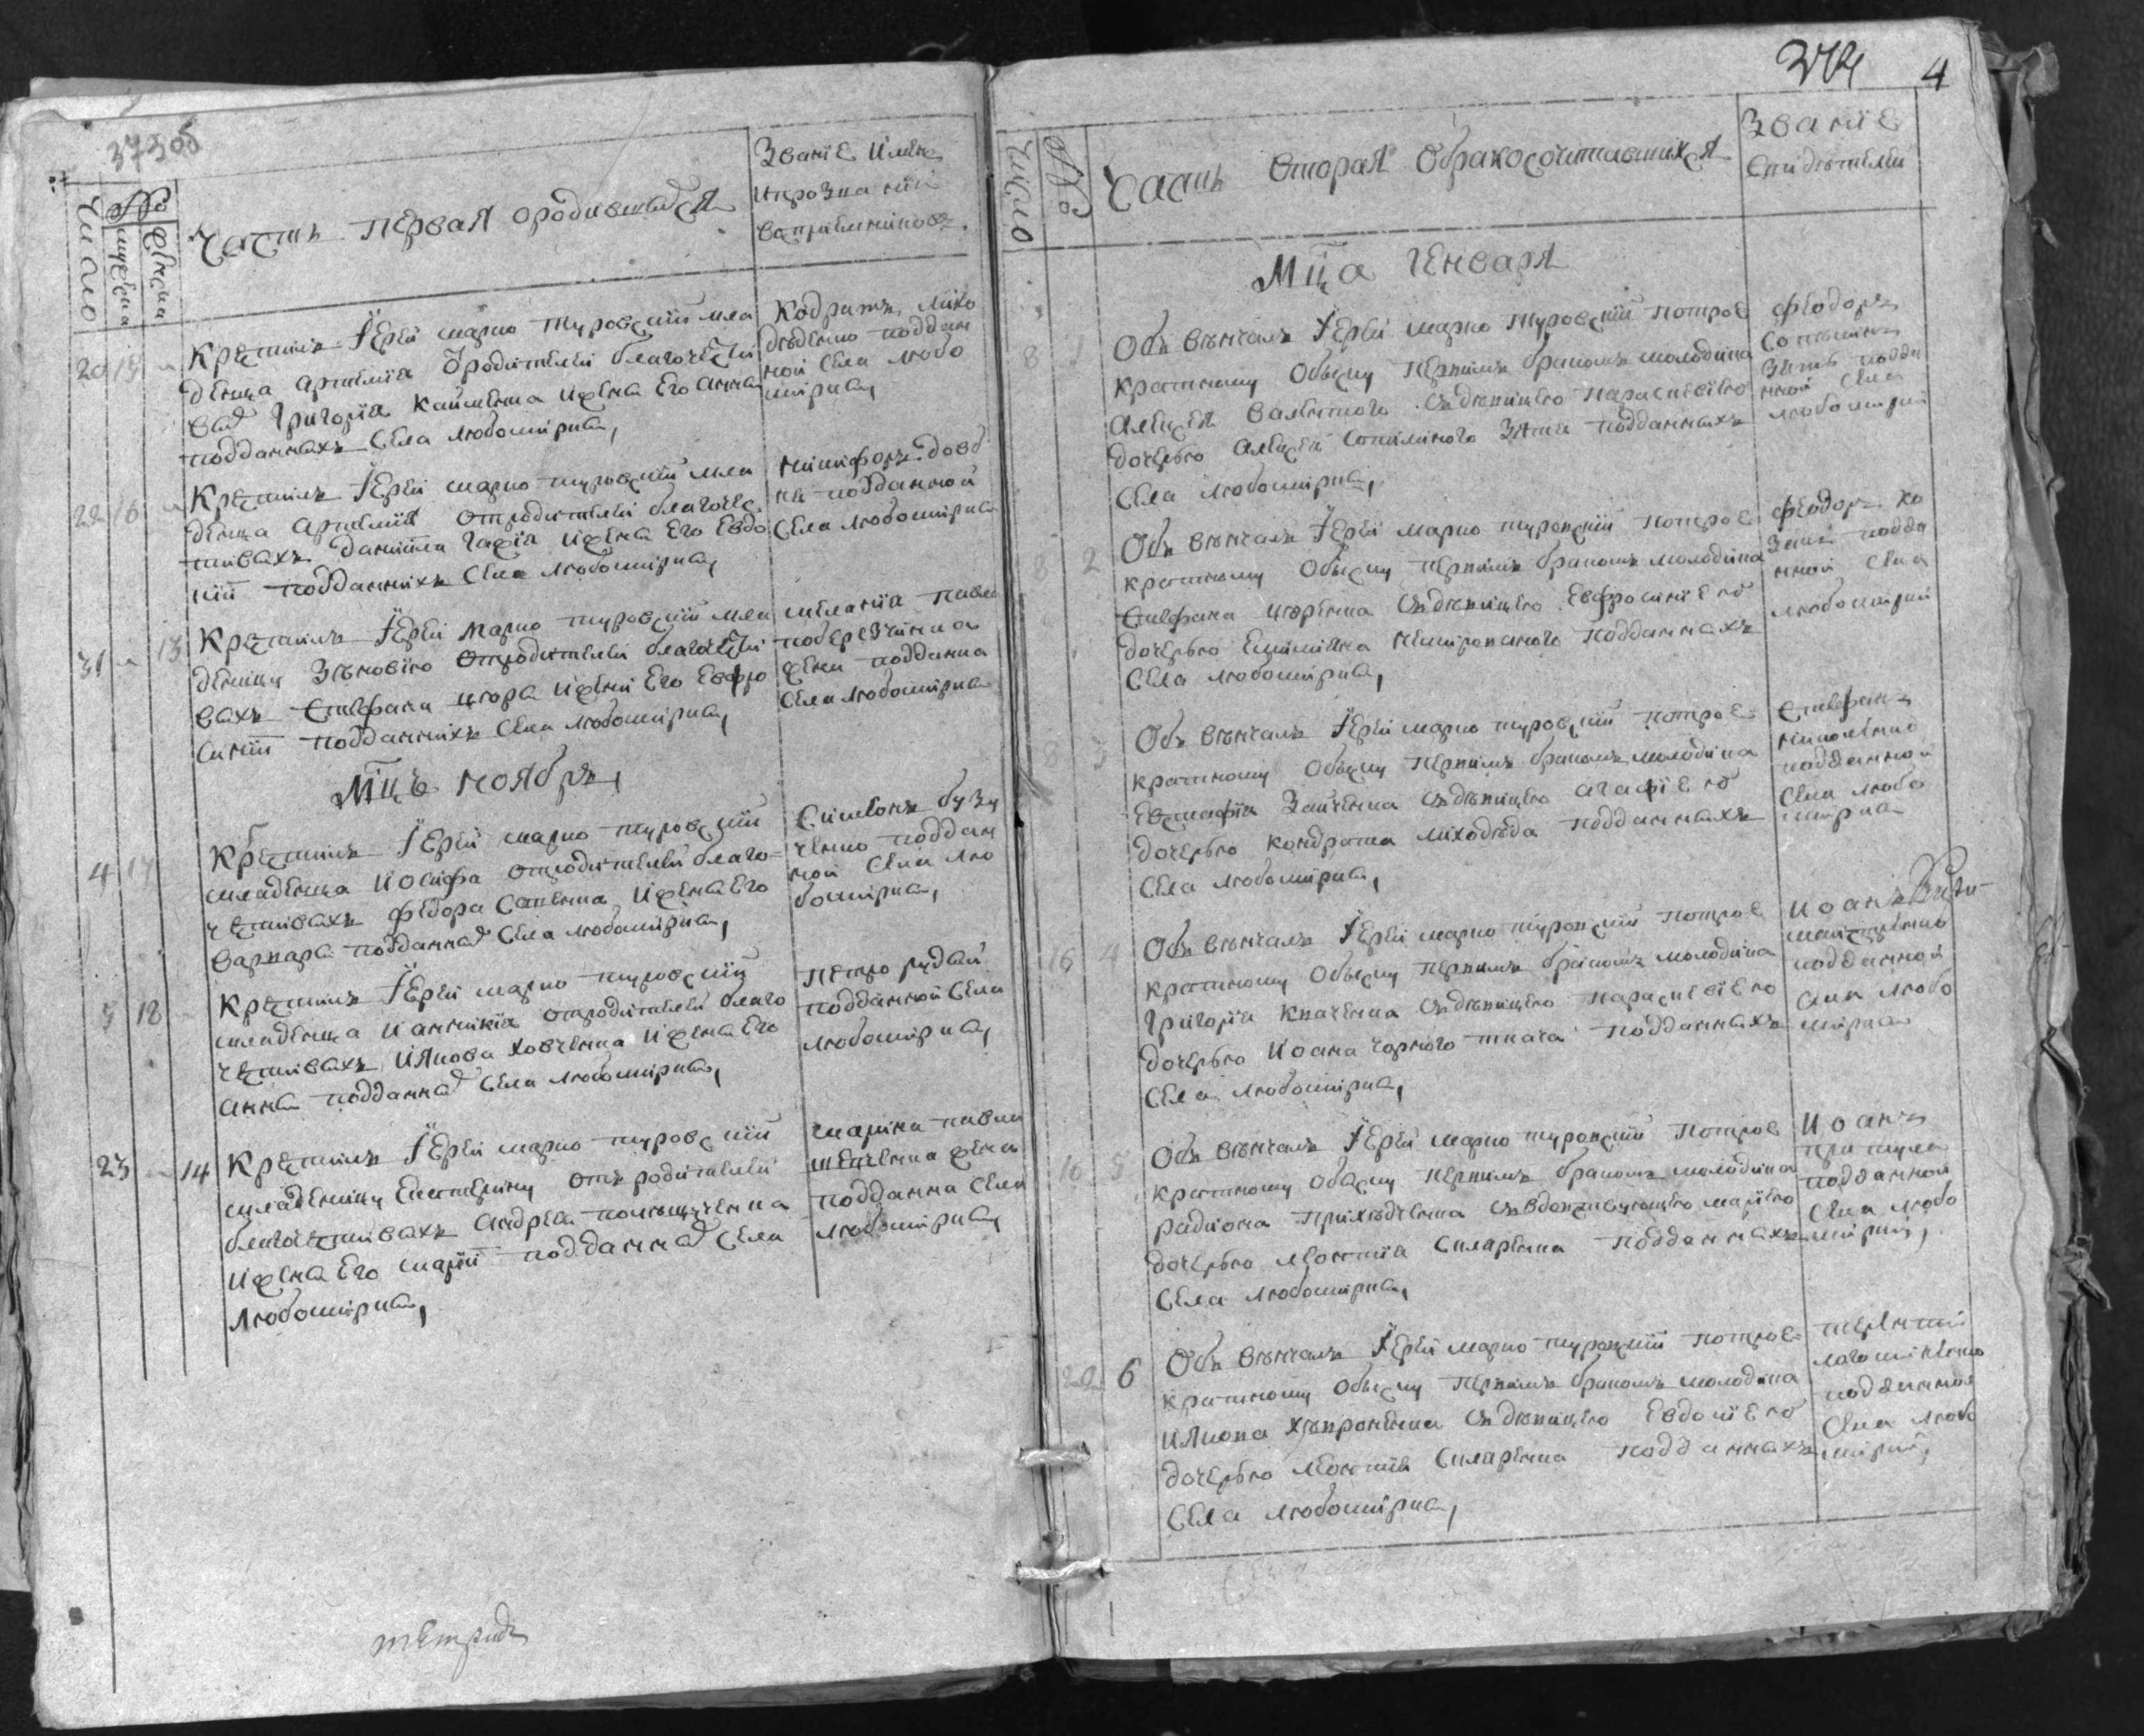 373об
Число
№
мужеска
женска
Часть первая ородившихся
Званїе Имена
Ипрозванїи
воспрїемниковъ
20 15
Крестилъ Їерей марко туровскїй мла
денца Артемїя Уродителей благочести
выхъ Григорїя Каймена Ижена Его Анна
подданныхъ Села Любомирка,
Кодратъ лихо
дѣденко поддан
ной Села Любо
мирка,
22 16
Крестилъ Їерей марко туровскїй мла
денца Артемїя отродителей благоче
тивыхъ Данїила Ижена Его Евдо
кїи подданнихъ Села Любомирка,
Никифоръ довб
подданной
Села Любомирка
31 13
Крестилъ Їерей марко туровскїй мла
деницу Зѣновїю Отродителей благочести
выхъ Стефана цюра Ижени Его Евфро
синїи подданнихъ Села Любомирка,
меланїя павла
поберезнина
жена поддана
Села Любомирка
Мцъ ноябръ,
4 17
Крестилъ Їерей марко туровскїй
младенца Иосифа отродителей благо
честивыхъ Федора Сапена Ижена Его
Варвара подданныхъ Села Любомирка,
Симеонъ бузу
ченко поддан
ной Села Лю
бомирка,
9 18
Крестилъ Їерей марко туровскїй
младенца Иоаникїя отродителей благо
честивыхъ Иякова Ховченка Ижена Его
Анна подданныхъ Села Любомирка,
Петро рудый
подданной Села
Любомирка,
23 14
Крестилъ Їерей марко туровскїй
младеницу Екатерину отъ родителей
благочестивыхъ Андрея полѣщученка
Ижена Его марїи подданныхъ Села
Любомирка,
марина павла
шевченка жена
поддана Села
Любомирка,
тетрадь
374 4
Число
№
Часть вторая Обракосочитавшихся
Званїе
Свидѣтелей
Мца Генваря
8 1
Объ вѣнчалъ Їерей марко туровскїй потрое
кратному обыску первимъ бракомъ молодика
Алексея Валентого Съдѣвицею Параскевїею
дочерью Алексея Сотниного Зятя подданныхъ
Села Любомирка,
Феодоръ
Сотнинъ
Зять подда
нной Села
Любомирки
8 2
Объ вѣнчалъ Їерей марко туровскїй потрое
кратному обыску первимъ бракомъ молодика
Стефана цюренка Съдѣвицею Евфросинїею
дочерью Ефимїяна подданныхъ
Села Любомирка,
Феодоръ Ко
подда
нной Села
Любомирки
8 3
Объ вѣнчалъ Їерей марко туровскїй потрое
кратному обыску первимъ бракомъ молодика
Евстафїя Зайченка Съдѣвицею Агафїею
дочерью Кондрата лиходѣда подданныхъ
Села Любомирка,
Стефанъ
николенко
подданной
Села Любо
мирка
16 4
Объ вѣнчалъ Їерей марко туровскїй потрое
кратному обыску первимъ бракомъ молодика
Григорїя Квачена Съдѣвицею Параскевїею
дочерью Иоана чорного ткача подданныхъ
Села Любомирка,
Иоанъ
подданной
Села Любо
мирка
16 5
Объ вѣнчалъ Їерей марко туровскїй потрое
кратному обыску первимъ бракомъ молодика
Радиона Прихѣдченка Съвдовствующею марїею
дочерью Леонтїя Склярена подданныхъ
Села Любомирка,
Иоанъ
притула
подданной
Села Любо
мирки,
22 6
Объ вѣнчалъ Їерей марко туровскїй потрое
кратному обыску первимъ бракомъ молодика
Иякова Съдѣвицею Евдокїею
дочерью Леонтїя Склярена подданныхъ
Села Любомирка,
терентий
подданной
Села Любо
мирки,